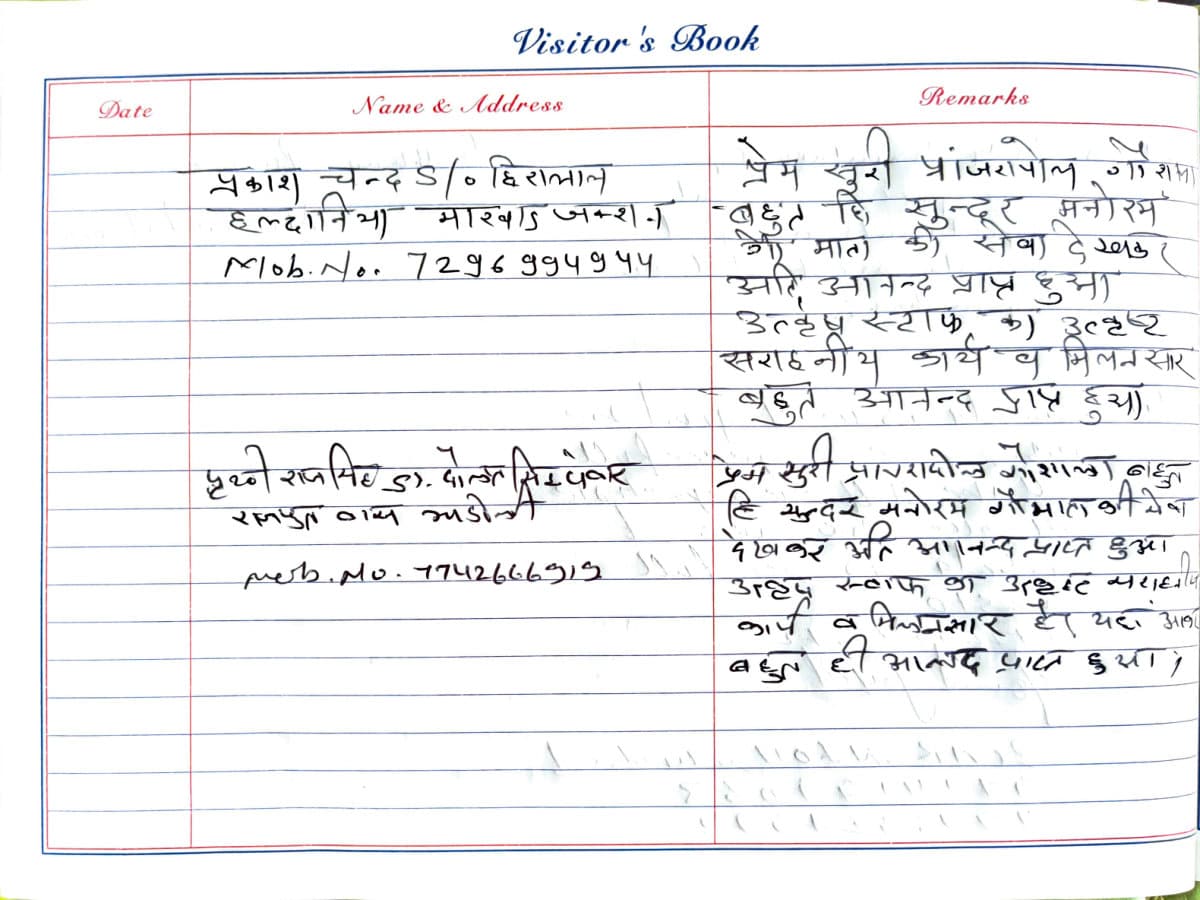 Visitor's Book
Date
Name & Address
Remarks
प्रकाश चन्द S/o हिरालाल
हल्दानिया मारवाड जक्शन
Mob. No. 7296994944
प्रेम सुरी प्रांजरापोल गौशाला
बहुत हि सुन्दर मनोरम
गौ माता की सेवा देखकर
अति आनन्द प्राप्त हुआ
उत्कृष्ठ स्टाफ का उत्कृष्ट
सराहनीय कार्य व मिलनसार
बहुत आनन्द प्राप्त हुया
पृथ्वी राजसिंह S/o. दौलत सिंह पंवर
राजपुत वास
Mob. No. 7742666919
प्रेम सुरी प्रांजरापोल गौशाला बहुत
हि सुन्दर मनोरम गौ माता की सेवा
देखकर अति आनन्द प्राप्त हुआ
स्टाफ का उत्कृष्ट सराहनीय
कार्य व मिलनसार है। यहां आकर
बहुत ही आनन्द प्राप्त हुआ।